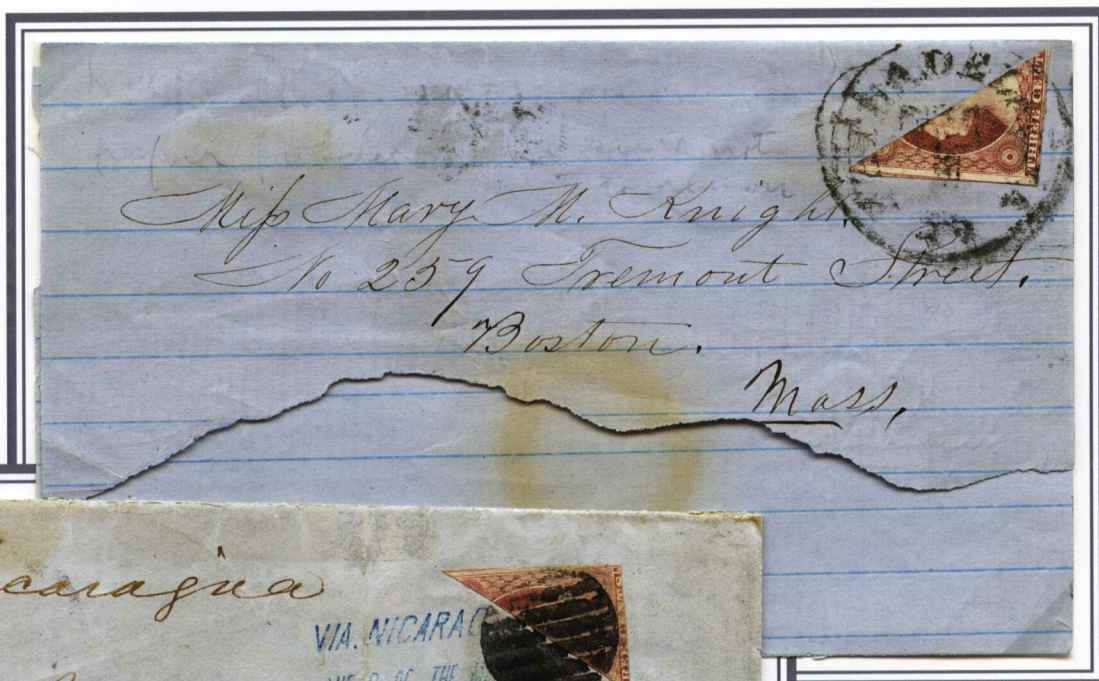 Miss Mary M. Knight.
No 259 Tremont Street.
Boston.
Mass,
THREE CENTS
caragua
VIA. NICARAG
OF THE